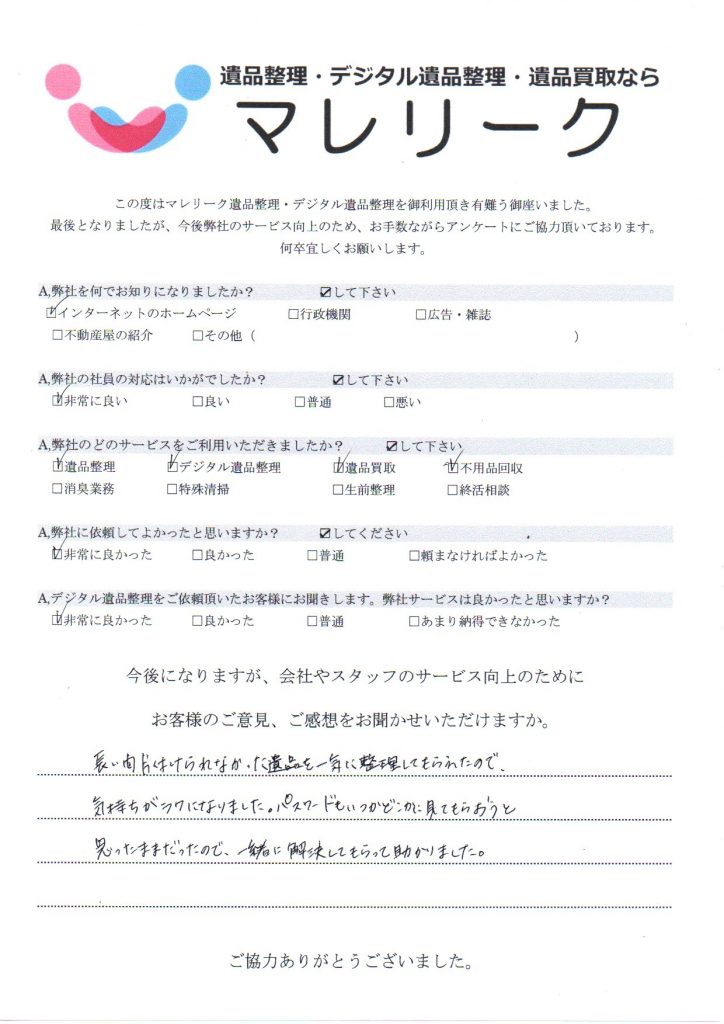 遺品整理・デジタル遺品整理・遺品買取なら
マレリーク
この度はマレリーク遺品整理・デジタル遺品整理を御利用頂き有難う御座いました。
最後となりましたが、今後弊社のサービス向上のため、お手数ながらアンケートにご協力頂いております。
何卒宜しくお願いします。
A,弊社を何でお知りになりましたか？ ☑して下さい
☑インターネットのホームページ □行政機関 □広告・雑誌
□不動産屋の紹介 □その他（ ）
A,弊社の社員の対応はいかがでしたか？ ☑して下さい
☑非常に良い □良い □普通 □悪い
A,弊社のどのサービスをご利用いただきましたか？ ☑して下さい
☑遺品整理 ☑デジタル遺品整理 ☑遺品買取 ☑不用品回収
□消臭業務 □特殊清掃 □生前整理 □終活相談
A,弊社に依頼してよかったと思いますか？ ☑してください
☑非常に良かった □良かった □普通 □頼まなければよかった
A,デジタル遺品整理をご依頼頂いたお客様にお聞きします。弊社サービスは良かったと思いますか？
☑非常に良かった □良かった □普通 □あまり納得できなかった
今後になりますが、会社やスタッフのサービス向上のために
お客様のご意見、ご感想をお聞かせいただけますか。
長い間片付けられなかった遺品を一気に整理してもられたので、
気持ちがラクになりました。パスワードもいつかどこかに見てもらおうと
思ったままだったので、一緒に解決してもらって助かりました。
ご協力ありがとうございました。